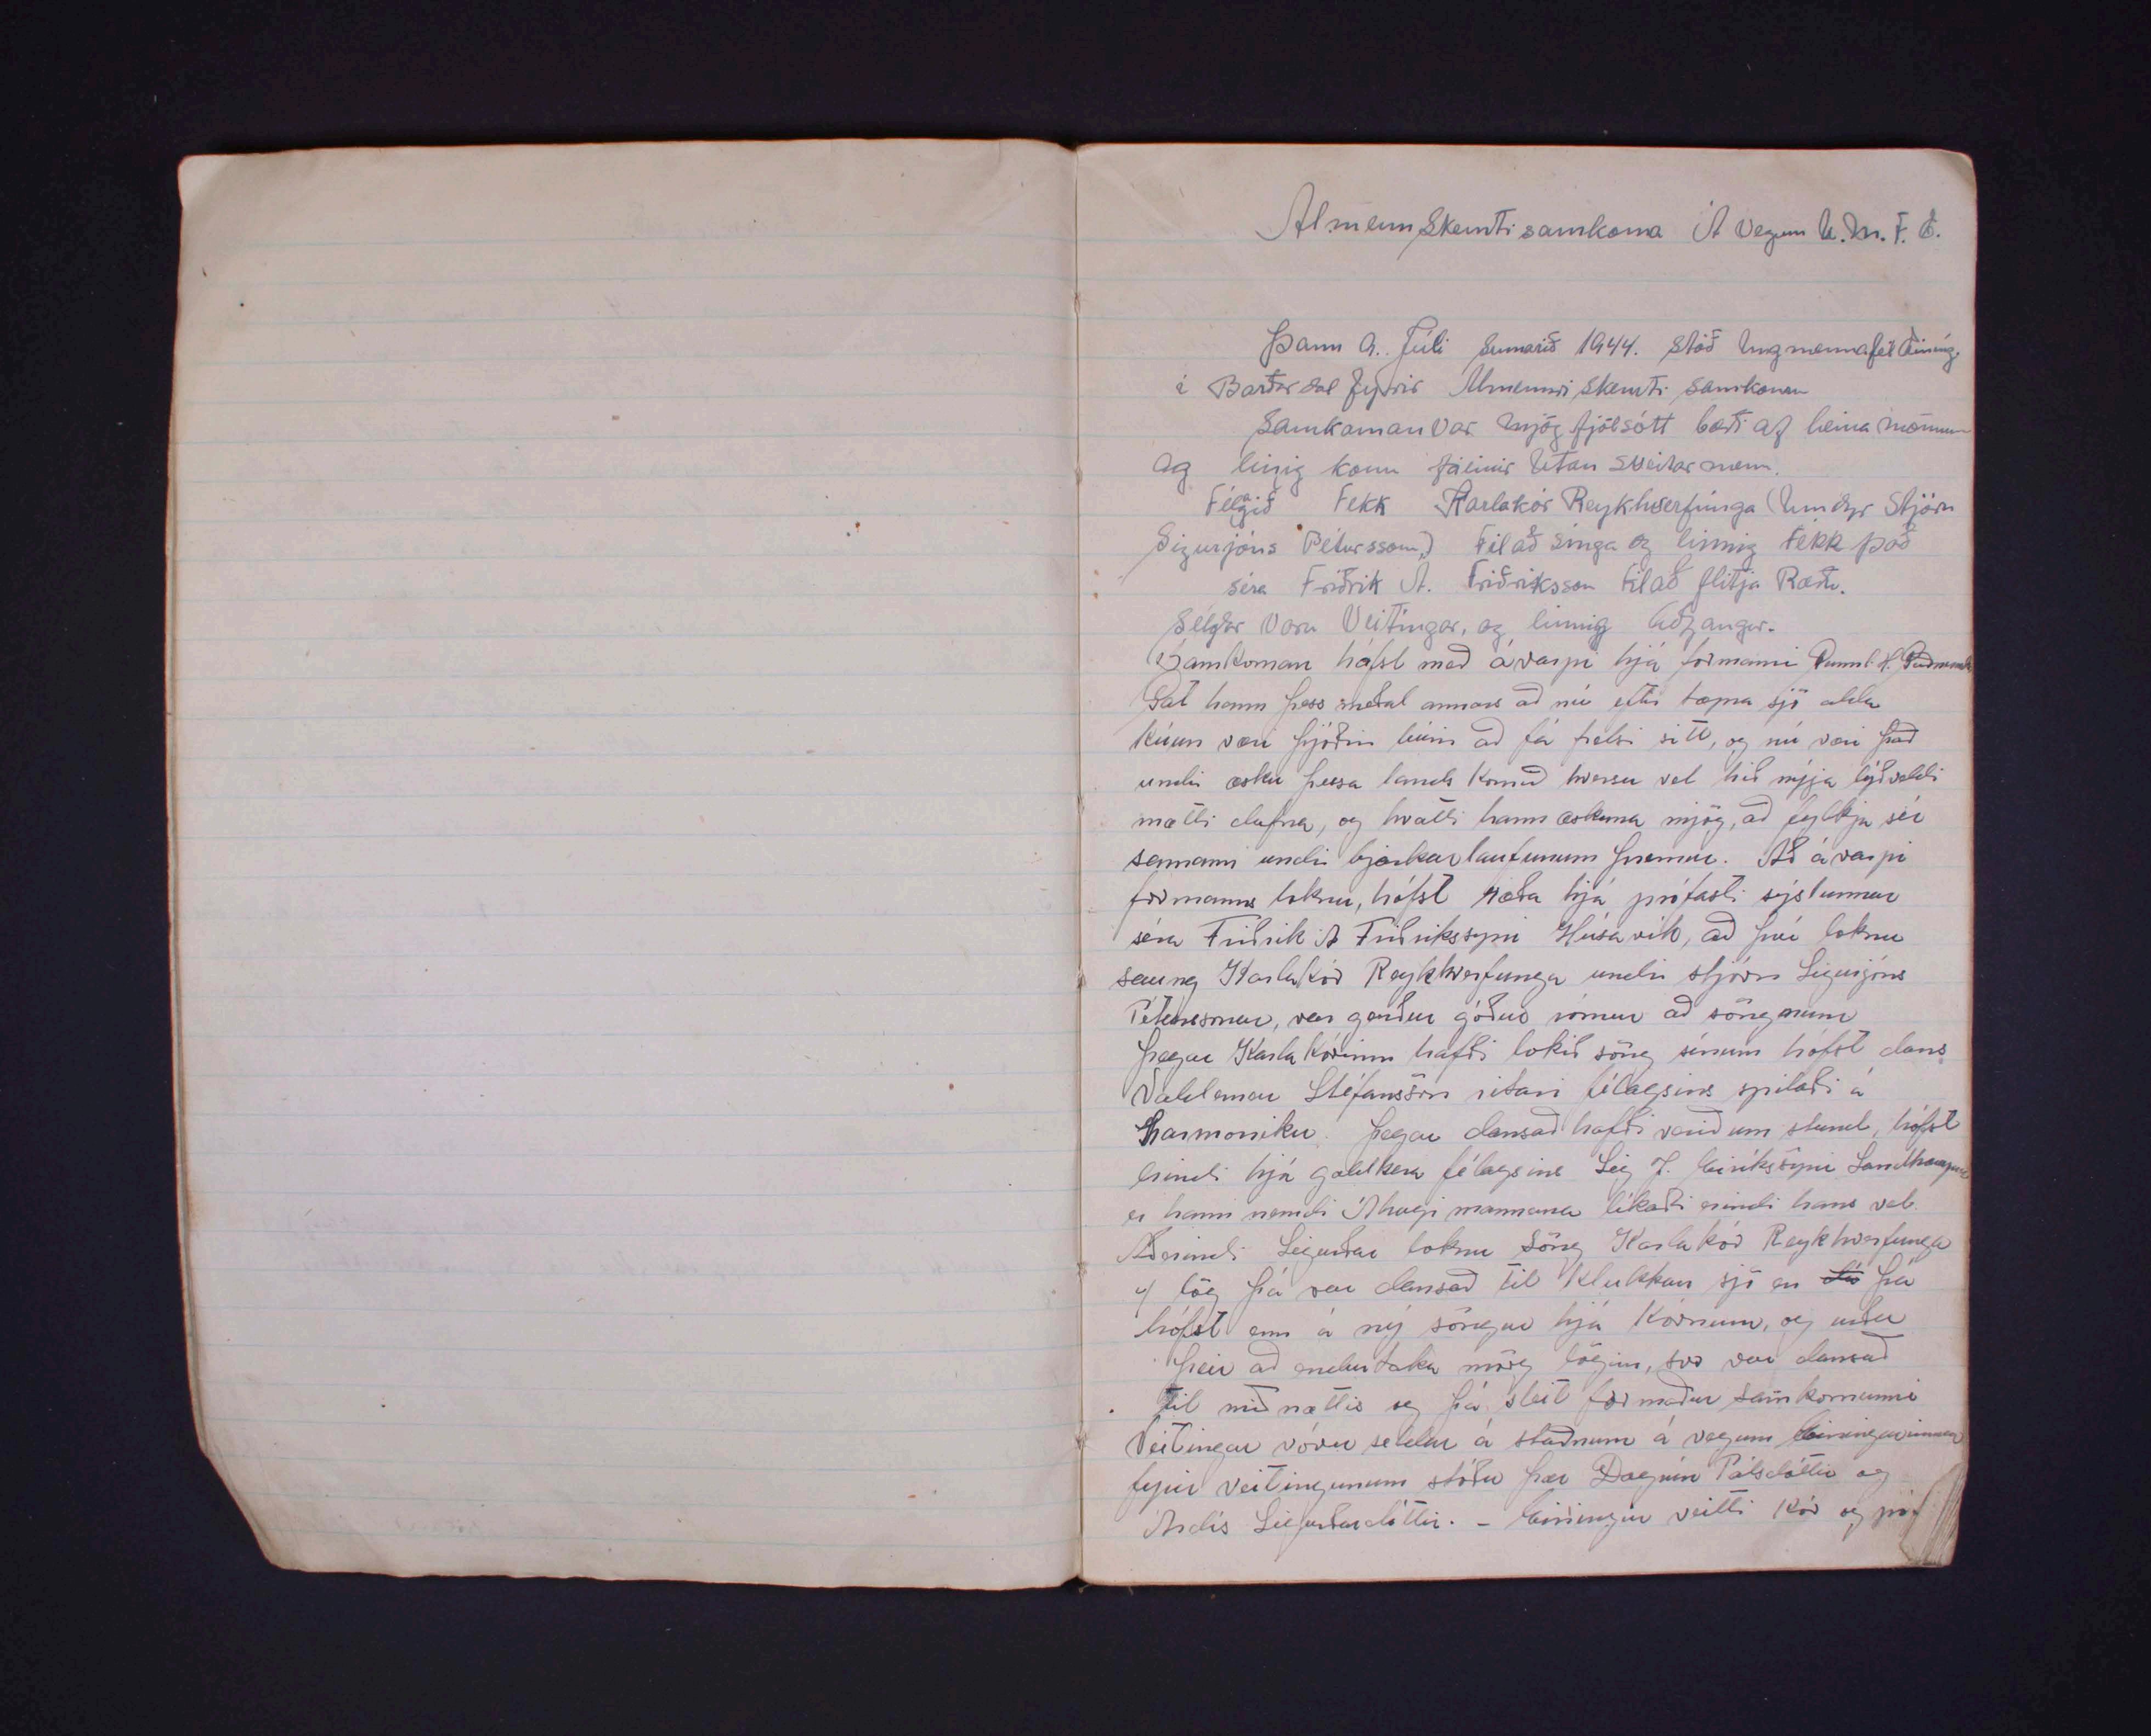 Almenn Skemtisamkoma Á Vegum U.M.F.E.
Þann 9. Júlí Sumarið 1944. Stóð Ungmennafél Eining.
í Barðardal fyrir Almenri Skemti samkomu
Samkoman var mjög fjölsótt bæði af heima mönnum
og einig komu fáeinir Utan sveitar menn.
Félagið Fekk Karlakór Reykhverfinga (Undyr Stjórn
Sigurjóns Péturssonn) til að singa og einnig Fékk það
séra Friðrik A. Friðriksson til að flitja Ræðu.
Seldar Voru Veitingar, og einnig Aðgangur.
Samkoman hófst með ávarpi hjá formanni
Gat hann þess meðal annars að nú eftir tæpra sjö alda
kúun væri þjóðin búin að fá frelsi sitt, og nú væri það
undir æsku þessa lands komið hversu vel hið nýja lýðveldi
mætti dafna, og hvatti hann æskuna mjög, að fylkja sér
samann undir bjarkarlaufunum þremur. Að ávarpi
formanns loknu, hófst ræða hjá prófasti sýslunnar
séra Friðrik A Friðrikssyni Húsavík, að því loknu
saung Karlakór Reykhverfunga undir stjórn Sigurjóns
Péturssonar, var gerður góður rómur að söngnum
þegar Karlakórinn hafði lokið söng sínum hófst dans
Valdemar Stéfansson ritari félagsins spilaði á
Harmoniku. þegar dansað hafði verið um stund, hófst
Erindi hjá gjaldkera félagsins Sig J. Eiríkssyni Sandhaugum
er hann nemdi Áhugi mannanna líkaði erindi hans vel
Að erindi Sigurðar loknu Söng Karlakór Reykhverfunga
4 lög þá var dansað til klukkan sjö en þá
hófst enn á ný söngur hjá Kórnum, og urðu
þeir að endurtaka mörg lögin, svo var dansað
til miðnættis og þá sleit formaður samkomunni
Veitingar vóru seldar á staðnum á vegum Einingarinnar
fyrir veitingunum stóðu þær Dagrún Pálsdóttir og
Árdís Sigurðardóttir. - Einingin veitti Kór og